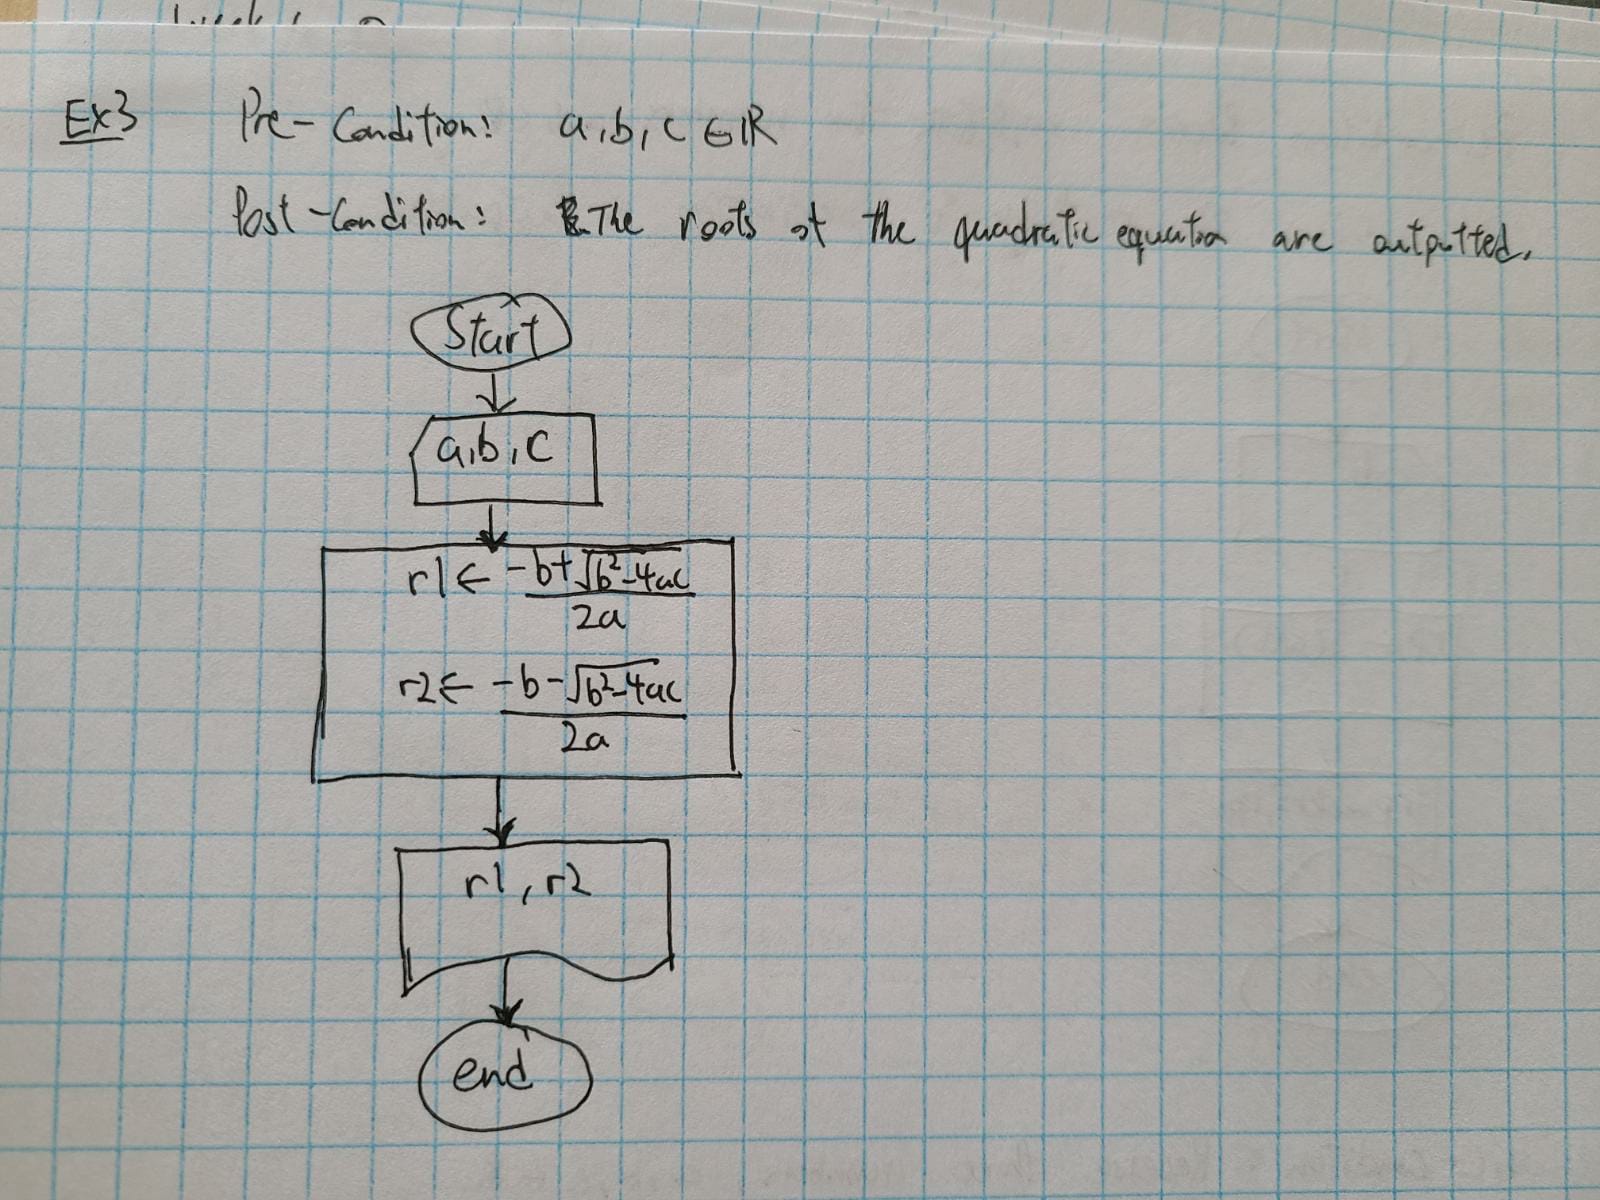 Ex3 Pre-Condition: a, b, c ∈ ℝ
Post-Condition: The roots of the quadratic equation are outputted.
Start
a, b, c
r1 ← (-b + √(b²-4ac)) / 2a
r2 ← (-b - √(b²-4ac)) / 2a
r1, r2
end